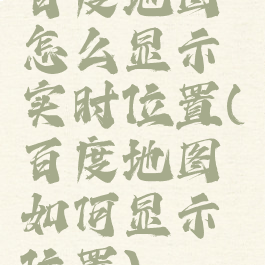 百度地图
怎么显示
实时位置(
百度地图
如何显示
位置)